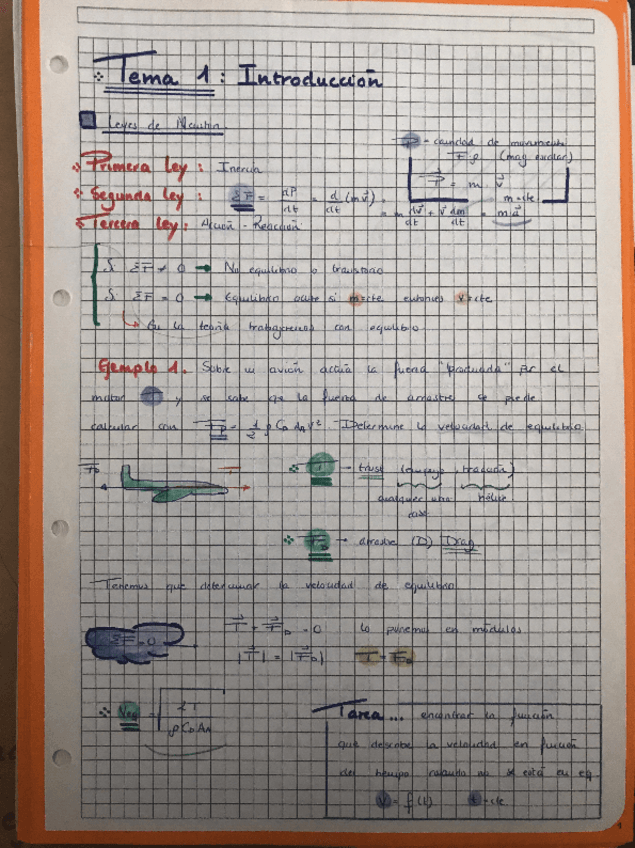 Tema 1: Introducción
Leyes de Newton
P = cantidad de movimiento
(mag escalar)
P = m · v
Primera Ley: Inercia
Segunda Ley: ΣF = dP/dt = d/dt (mv) = m dv/dt + v dm/dt = ma
m=cte
Tercera Ley: Acción - Reacción
Si ΣF ≠ 0 → No equilibrio o transitorio
Si ΣF = 0 → Equilibrio ocurre si m=cte entonces v=cte
↳ En la teoría trabajaremos con equilibrio.
Ejemplo 1. Sobre un avión actúa la fuerza "producida" por el
motor T y se sabe que la fuerza de arrastre se puede
calcular con F_D = 1/2 ρ C_D A_A V². Determine la velocidad de equilibrio.
F_D T
T → trust (empuje, tracción)
cualquier otro hélice
caso
F_D → arrastre (D) Drag
Tenemos que determinar la velocidad de equilibrio
ΣF=0 → T + F_D = 0 lo ponemos en módulos
|T| = |F_D| T = F_D
Veq = √(2T / ρ C_D A_A)
Tarea... encontrar la función
que describe la velocidad en función
del tiempo cuando no está en eq
V = f(t) t=cte